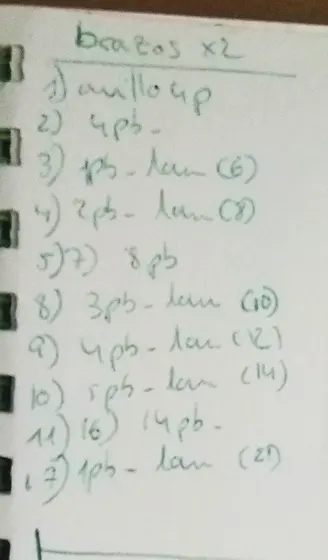 brazos x2
1) anillo 4p
2) 4pb-
3) 1pb- 1au (6)
4) 2pb- 1au (8)
5)7) 8pb
8) 3pb- 1au (10)
9) 4pb- 1au (12)
10) 5pb- 1au (14)
11) 16) 14pb-
17) 1pb- 1au (21)